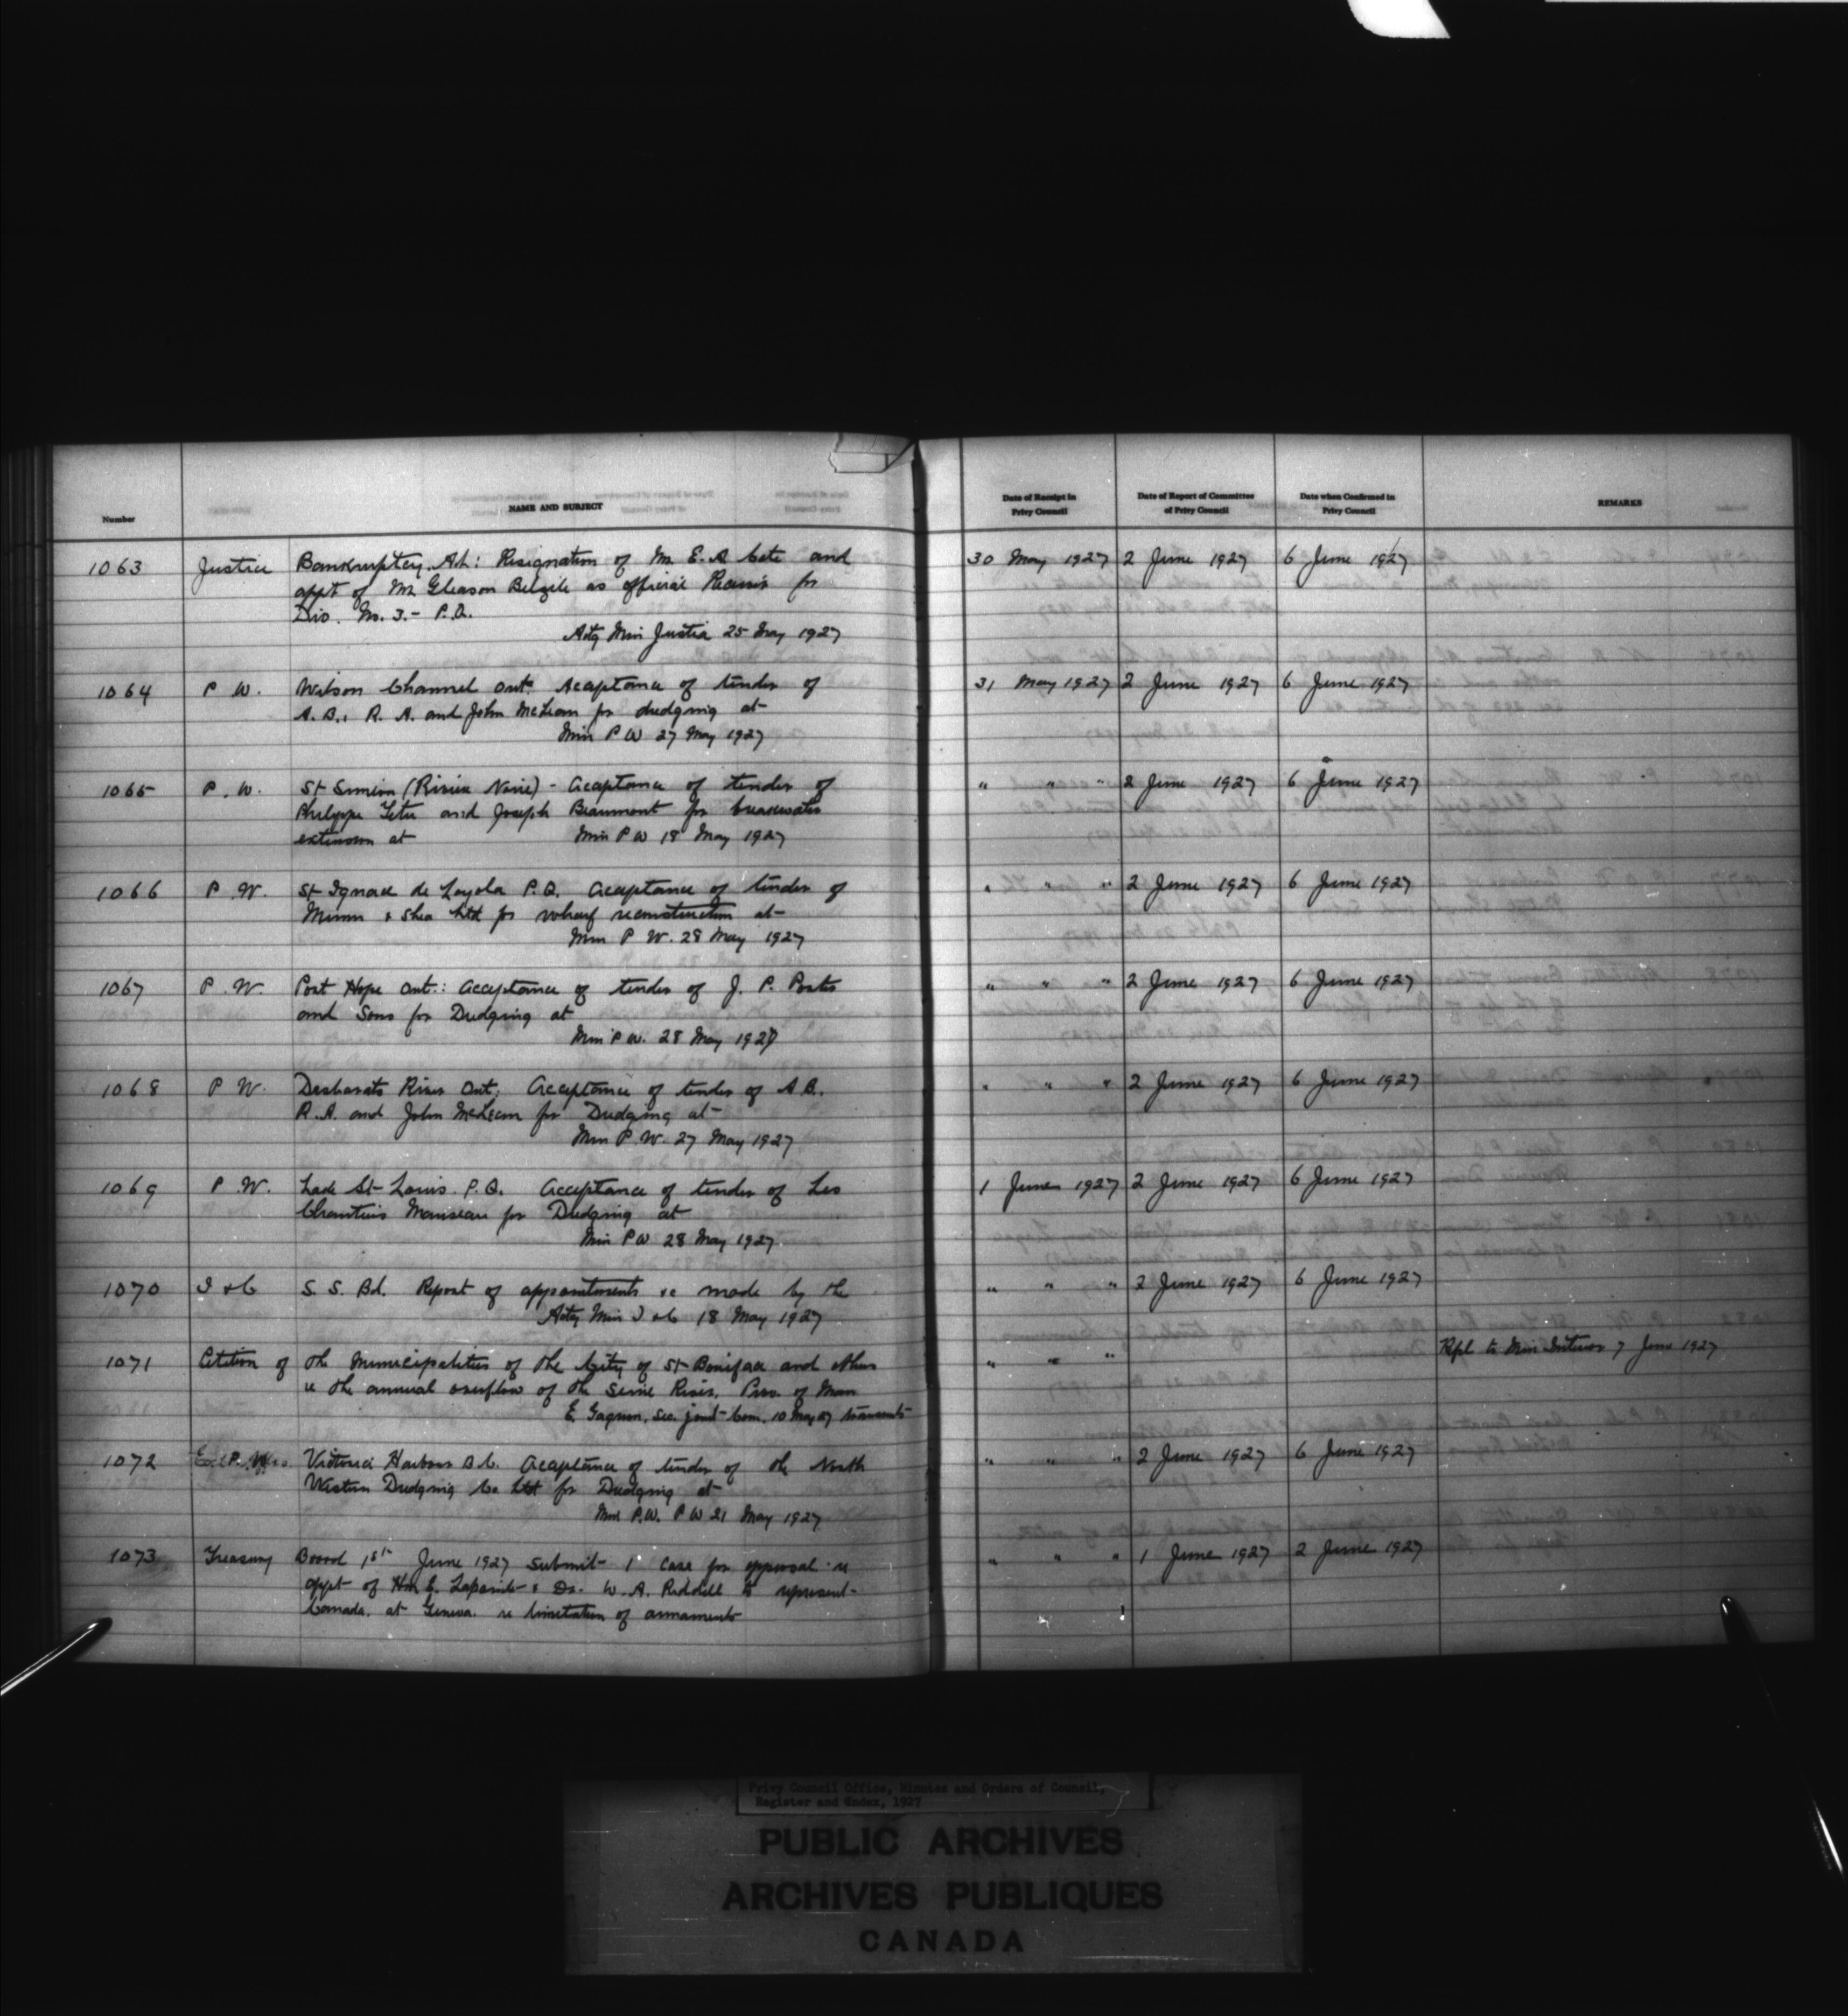 Number
NAME AND SUBJECT
Date of Receipt in Privy Council
Date of Report of Committee of Privy Council
Date when Confirmed in Privy Council
REMARKS
1063 Justice Bankruptcy Act: Resignation of Mr E. A Cote and 30 May 1927 2 June 1927 6 June 1927
appt of Mr Gleason Belzile as official Receiver for
Div. No. 3.- P.Q.
Actg Min Justice 25 May 1927
1064 P W. Wilson Channel Ont. Acceptance of tender of 31 May 1927 2 June 1927 6 June 1927
A. B., R. A. and John McLean for dredging at
Min P W 27 May 1927
1065 P. W. St Simeon (Riviere Noire) - Acceptance of tender of " " " 2 June 1927 6 June 1927
Philippe Tetu and Joseph Beaumont for breakwater
extension at Min P W 18 May 1927
1066 P. W. St Ignace de Loyola P.Q. Acceptance of tender of " " " 2 June 1927 6 June 1927
& Shea Ltd for wharf reconstruction at
Min P W. 28 May 1927
1067 P. W. Port Hope Ont.: Acceptance of tender of J. P. Porter " " " 2 June 1927 6 June 1927
and Sons for Dredging at
Min P W. 28 May 1927
1068 P W. Desbarats River Ont. Acceptance of tender of A B. " " " 2 June 1927 6 June 1927
R. A. and John McLean for Dredging at
Min P. W. 27 May 1927
1069 P. W. Lake St Louis. P.Q. Acceptance of tender of Les 1 June 1927 2 June 1927 6 June 1927
Chantiers Manseau for Dredging at
Min P W 28 May 1927
1070 I & C S. S. Bd. Report of appointments &c made by the " " " 2 June 1927 6 June 1927
Actg Min I & C 18 May 1927
1071 Petition of the Municipalities of the City of St Boniface and others " " " Refd to Min Interior 7 June 1927
re the annual overflow of the Seine River. Prov. of Man
E. Gagnon, Sec. joint Com. 10 May 27 transmits
1072 P. W. Victoria Harbour B C. Acceptance of tender of the North " " " 2 June 1927 6 June 1927
Western Dredging Co Ltd for Dredging at
Min P.W. P W 21 May 1927
1073 Treasury Board 1st June 1927 submit 1 case for approval re " " " 1 June 1927 2 June 1927
appt of Hon E. Lapointe & Dr. W. A. Riddell to represent
Canada. at Geneva. re limitation of armaments
Privy Council Office, Minutes and Orders of Council,
Register and Index, 1927
PUBLIC ARCHIVES
ARCHIVES PUBLIQUES
CANADA